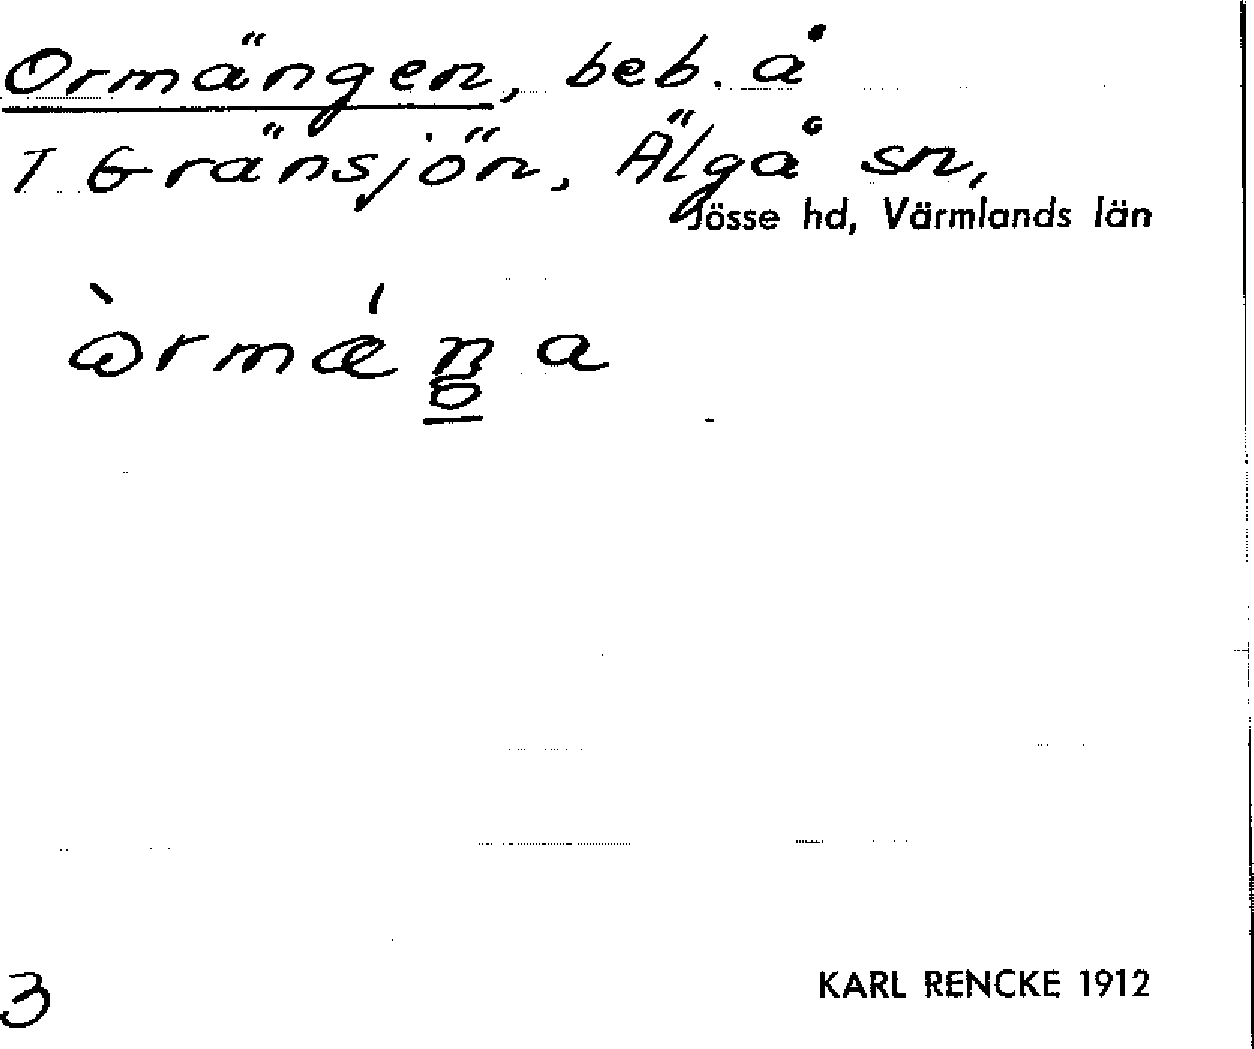 Ormängen, beb. å
1 Gränsjön, Älgå sn,
Jösse hd, Värmlands län
3
KARL RENCKE 1912